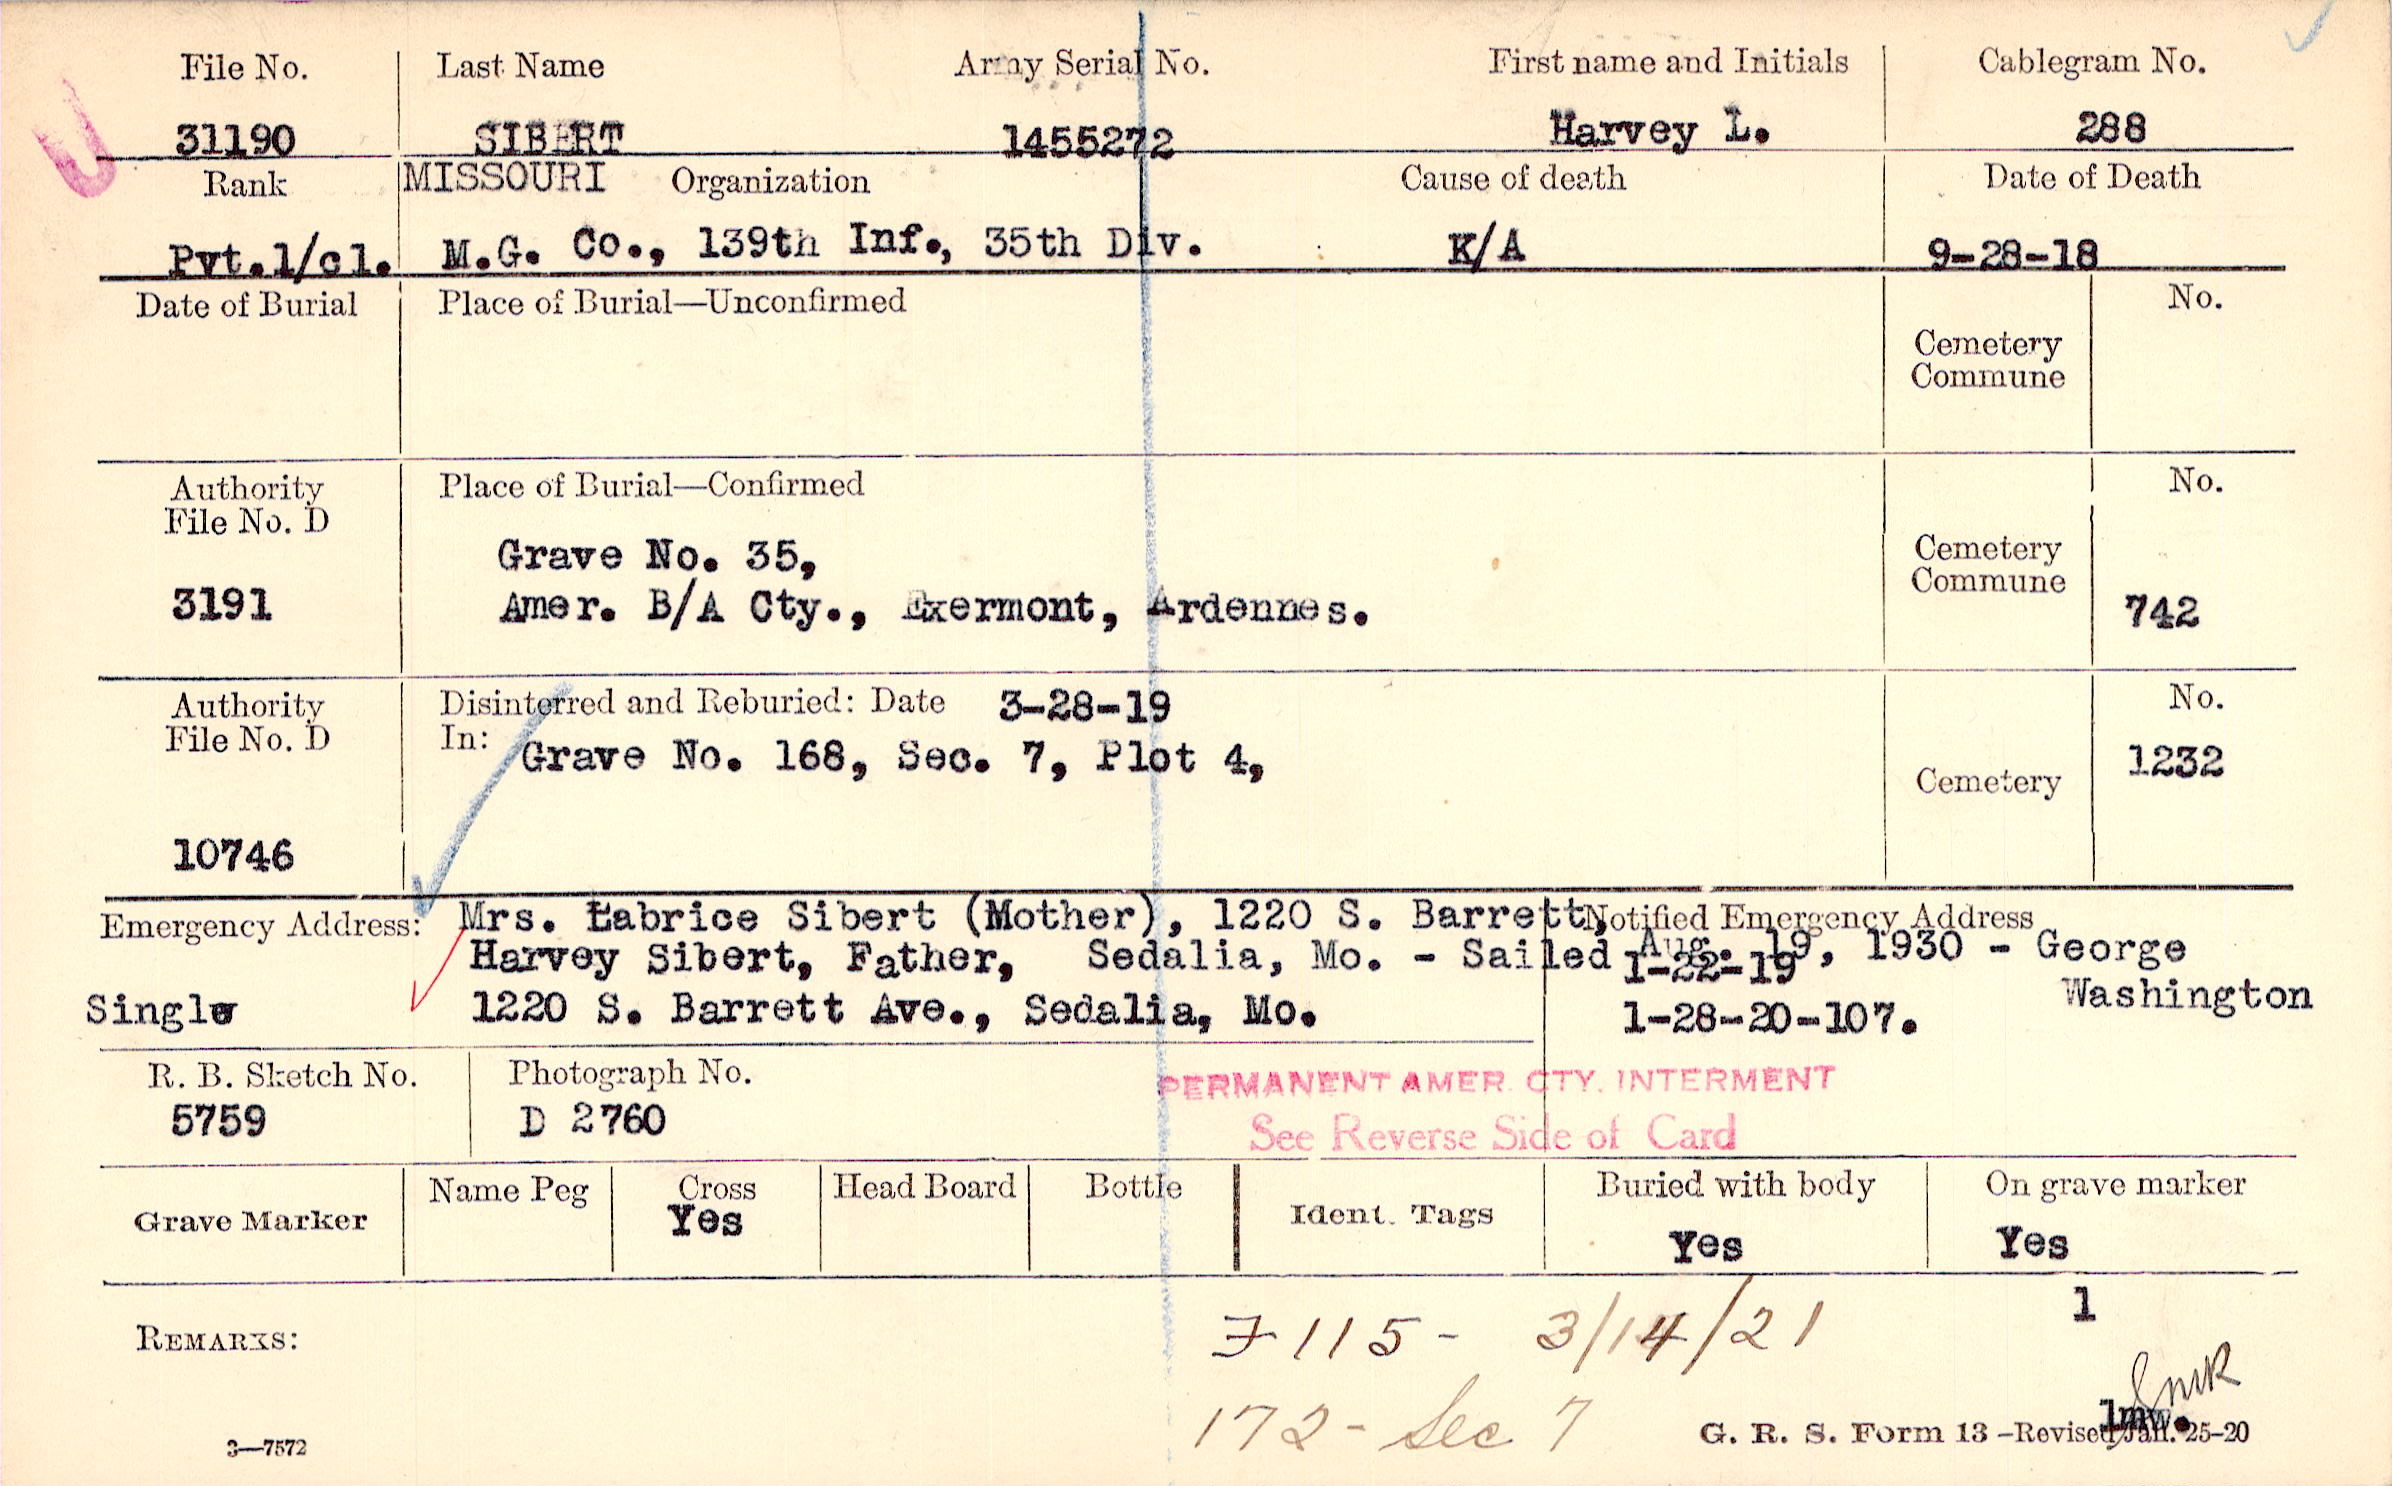 File No. Last Name Army Serial No. First name and Initials Cablegram No.
31190 SIBERT 1455272 Harvey L. 288
Rank MISSOURI Organization Cause of death Date of Death
Pvt.1/cl. M.G. Co., 139th Inf., 35th Div. K/A 9-28-18
Date of Burial Place of Burial—Unconfirmed No.
Cemetery
Commune
Authority Place of Burial—Confirmed No.
File No. D
Grave No. 35, Cemetery
3191 Amer. B/A Cty., Exermont, Ardennes. Commune 742
Authority Disinterred and Reburied: Date 3-28-19 No.
File No. D In: Grave No. 168, Sec. 7, Plot 4, 1232
Cemetery
10746
Emergency Address: Mrs. Labrice Sibert (Mother), 1220 S. Barrett, Notified Emergency Address
Harvey Sibert, Father, Sedalia, Mo. - Sailed Aug. 19, 1930 - George
1-22-19
Washington
Single 1220 S. Barrett Ave., Sedalia, Mo. 1-28-20-107.
R. B. Sketch No. Photograph No. PERMANENT AMER. CTY. INTERMENT
5759 D 2760 See Reverse Side of Card
Grave Marker Name Peg Cross Head Board Bottle Ident. Tags Buried with body On grave marker
Yes Yes Yes
1
REMARKS: F115- 3/14/21
JMR
172- Sec 7 lmw.
3—7572 G. R. S. Form 13 -Revised Jan. 25-20